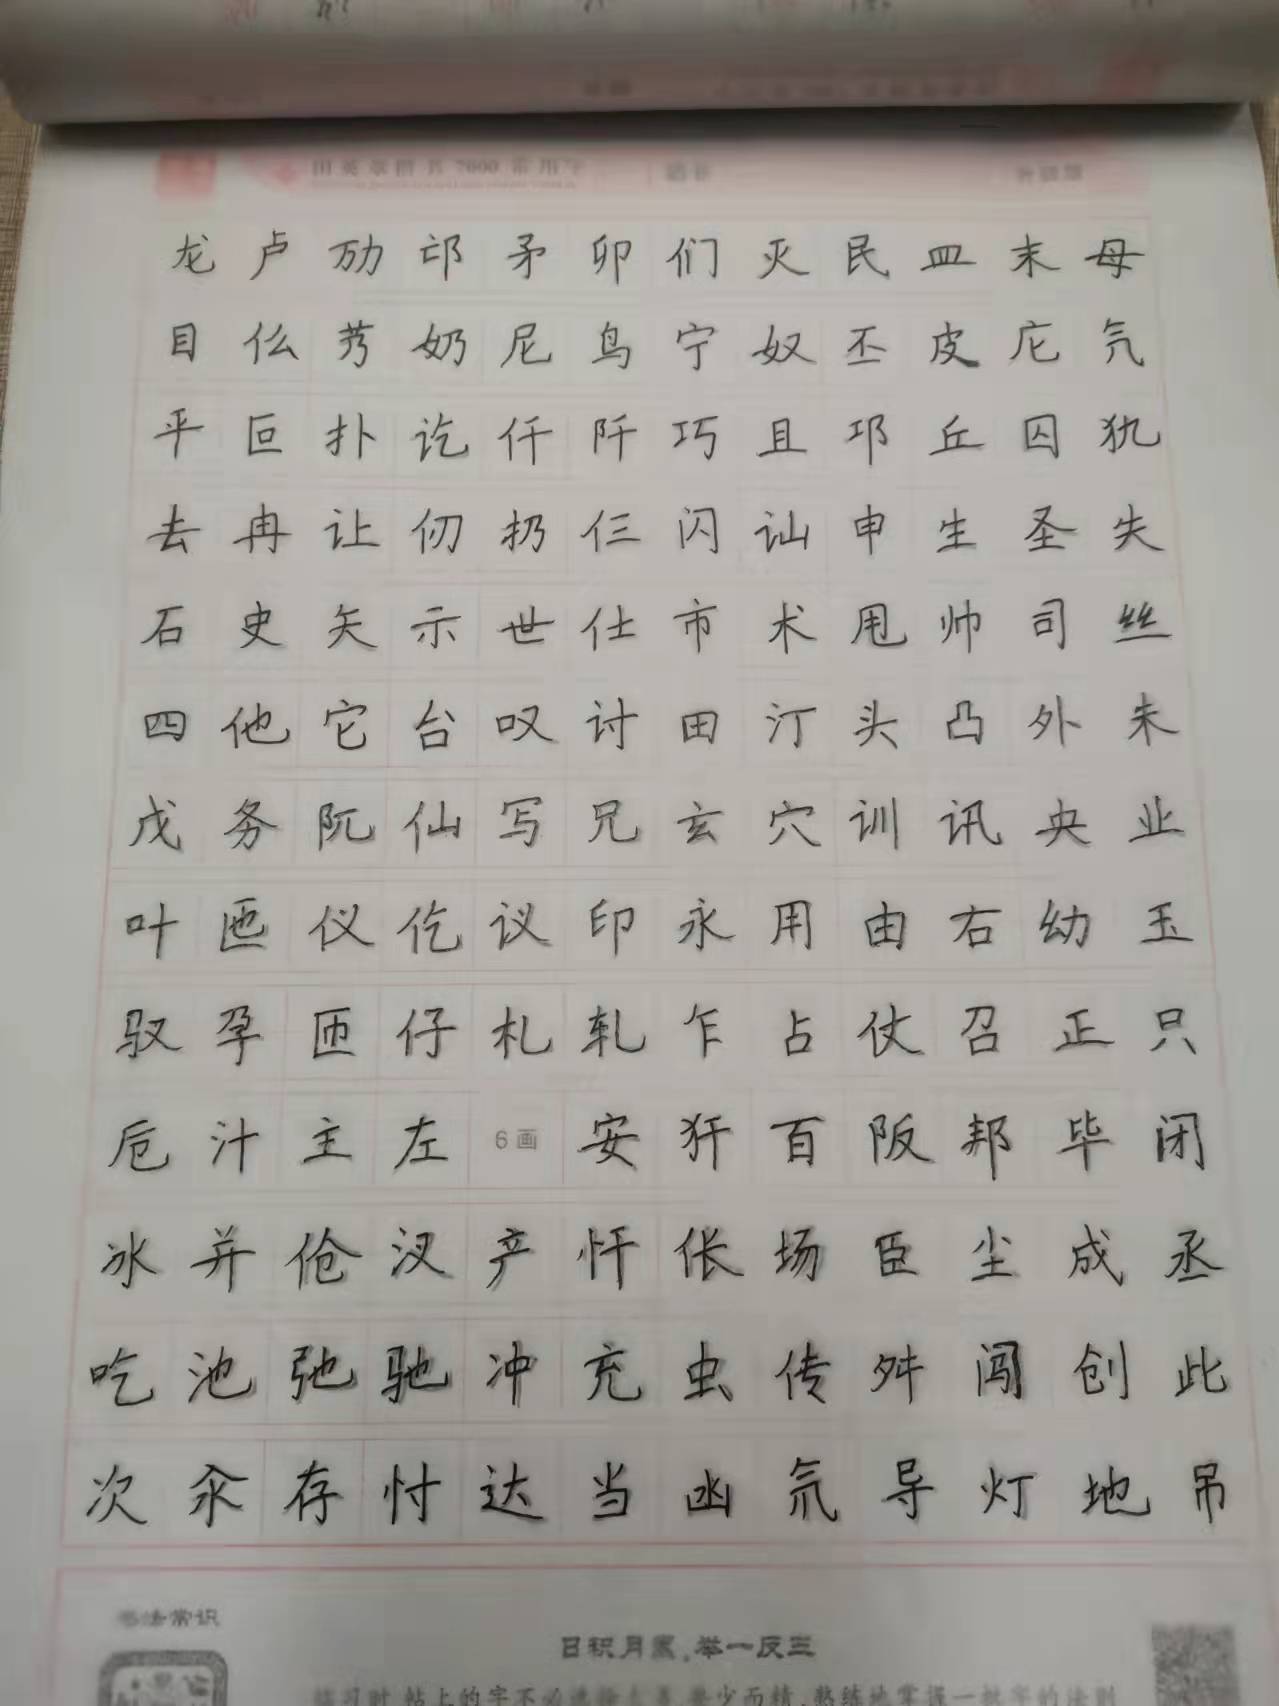 田英章楷书7000常用字
龙卢劢邙矛卯们灭民皿末母
目仫艿奶尼鸟宁奴丕皮庀氕
平叵扑讫仟阡巧且邛丘囚犰
去冉让仞扔仨闪讪申生圣失
石史矢示世仕市术甩帅司丝
四他它台叹讨田汀头凸外未
戊务阮仙写兄玄穴训讯央业
叶匜仪仡议印永用由右幼玉
驭孕匝仔札轧乍占仗召正只
卮汁主左6画安犴百阪邦毕闭
冰并伧汊产忏伥场臣尘成丞
吃池弛驰冲充虫传舛闯创此
次汆存忖达当凼氘导灯地吊
书法常识
日积月累,举一反三
练习时,帖上的字不必选择太多,要少而精,熟练地掌握一批字的法则